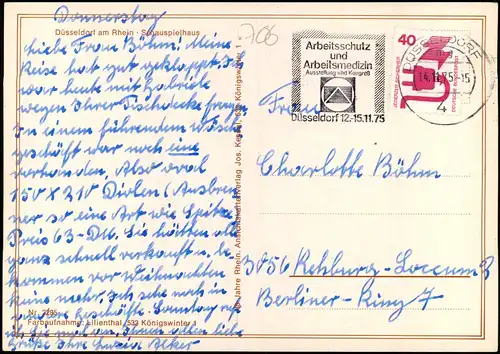 Donnerstag
Düsseldorf am Rhein · Schauspielhaus
Liebe Frau Böhm! Meine
Reise hat gut geklappt. Ich
war heute mit Gabriele
wegen Ihrer Tischdecke fragen
In einem führendem Wäsche
geschäft war noch eine
vorhanden, Also oval
150 X 210 Diolen (Ausbren
ner so eine Art wie Spitze
Preis 63- DM. Sie hätten alle
ganz schnell verkauft u. be
kommen vor Weihnachten
keine mehr. Ich sehe noch in
andere Geschäfte. Sonntag ruf
ich Sie mal an, Ihnen allen liebe
Grüße Ihre Alker
Nr.
Farbaufnahme: Lilienthal, 533 Königswinter 1
Jahre Rhein. Ansichtskartenverlag Jos. Königswinter
706
Arbeitsschutz
und
Arbeitsmedizin
Ausstellung und Kongreß
Düsseldorf 12.-15.11.75
40
DEUTSCHE BUNDESPOST
DÜSSELDORF
14.11.75-15
4
Frau
Charlotte Böhm
3056 Rehburg-Loccum 2
Berliner-Ring 7